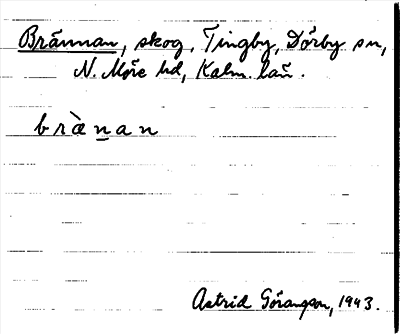 Brännan, skog, Tingby, Dörby sn,
N. Möre hd, Kalm. län.
bràe̠nan
Astrid Göransson, 1943.